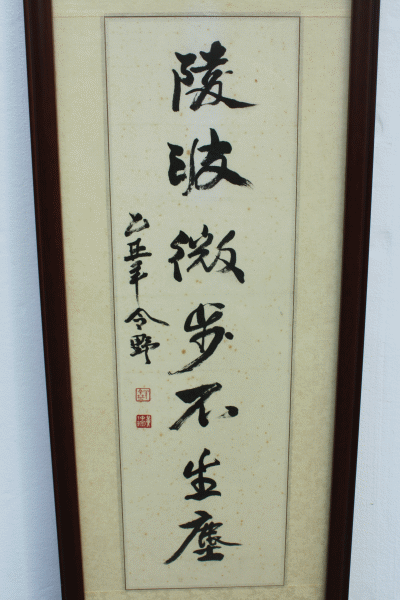 陵波微步不生塵
乙丑年令野